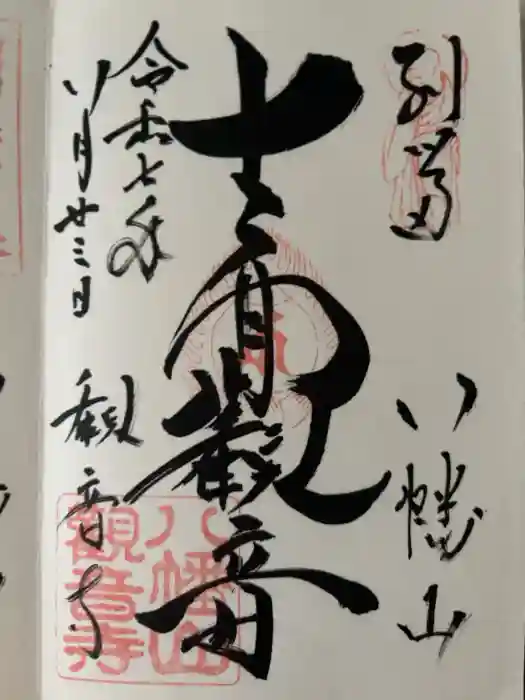 別當 八幡山
十一面観音
令和七年
八月廿三日 観音寺
八幡山
觀音寺